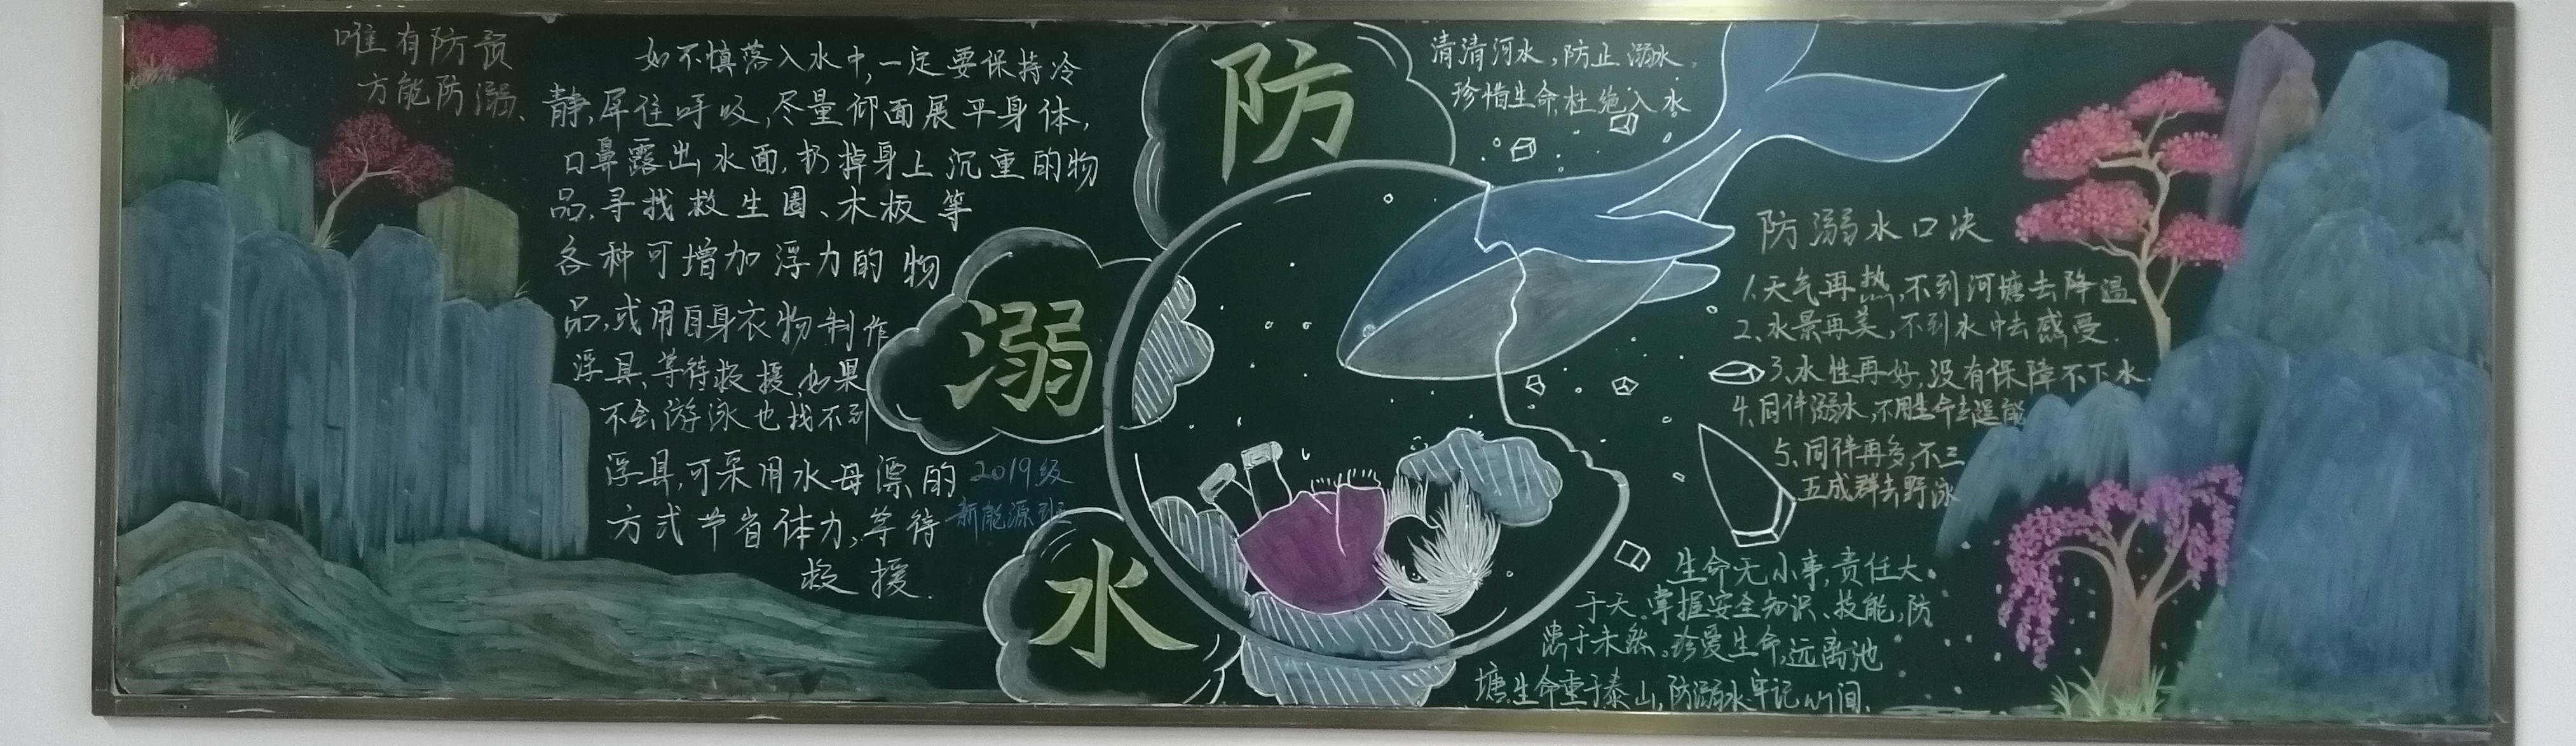 唯有防预
方能防溺、
如不慎落入水中,一定要保持冷
静,屏住呼吸,尽量仰面展平身体,
口鼻露出水面,扔掉身上沉重的物
品,寻找救生圈、木板等
各种可增加浮力的物
品,或用自身衣物制作
浮具、等待救援,如果
不会游泳也找不到
浮具,可采用水母漂的
方式节省体力,等待
救援.
2019级
新能源班
防
溺
水
清清河水,防止溺水,
珍惜生命,杜绝入水
防溺水口决
1.天气再热,不到河塘去降温
2、水景再美,不到水中去感受.
3、水性再好,没有保障不下水.
4、同伴溺水,不用生命去逞能
5、同伴再多,不三
五成群去野泳
生命无小事,责任大
于天.掌握安全知识、技能,防
患于未然。珍爱生命,远离池
塘,生命重于泰山,防溺水牢记心间.